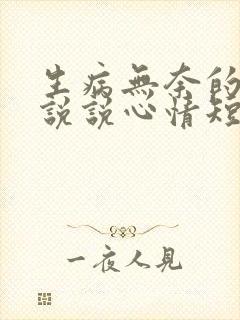 生病無奈的
説説心情短
一夜人見